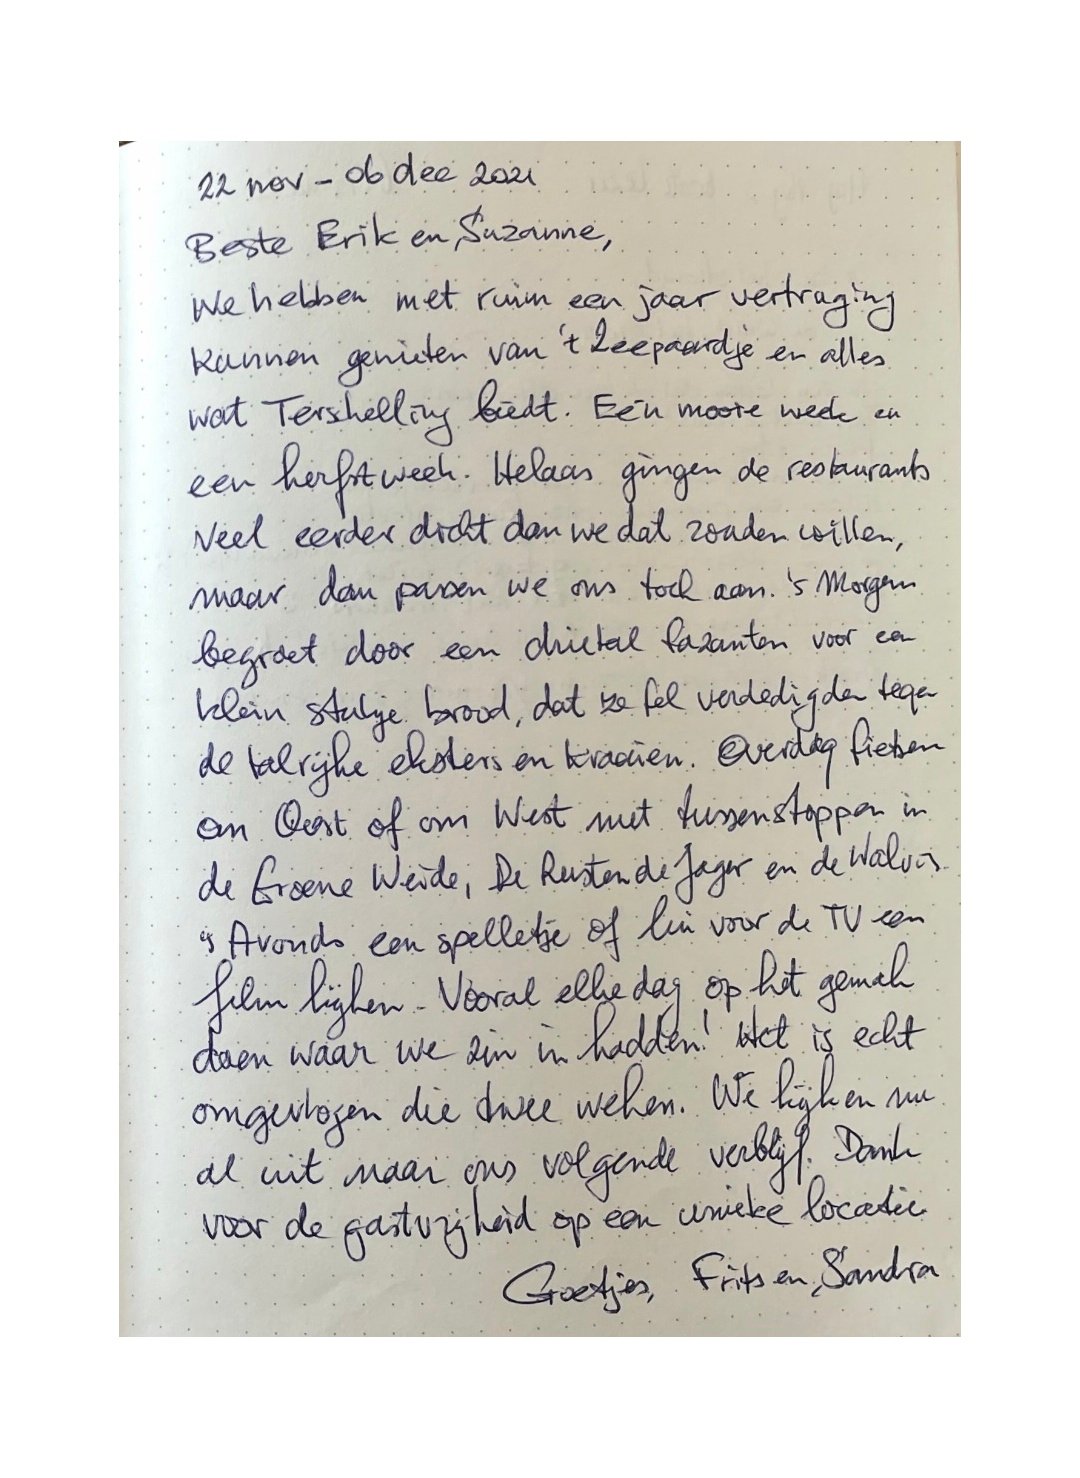 22 nov - 06 dec 2021
Beste Erik en Suzanne,
We hebben met ruim een jaar vertraging
kunnen genieten van 't Zeepaardje en alles
wat Terschelling biedt. Eén mooie week en
een herfstweek. Helaas gingen de restaurants
veel eerder dicht dan we dat zouden willen,
maar dan passen we ons toch aan. 's Morgens
begroet door een drietal fazanten voor een
klein stukje brood, dat ze fel verdedigden tegen
de talrijke eksters en kraaien. Overdag fietsen
om Oost of om West met tussenstoppen in
de Groene Weide, De Rustende Jager en de Walvis.
's Avonds een spelletje of lui voor de TV een
film kijken. Vooral elke dag op het gemak
doen waar we zin in hadden! Het is echt
omgevlogen die twee weken. We kijken nu
al uit naar ons volgende verblijf. Dank
voor de gastvrijheid op een unieke locatie
Groetjes, Frits en Sandra